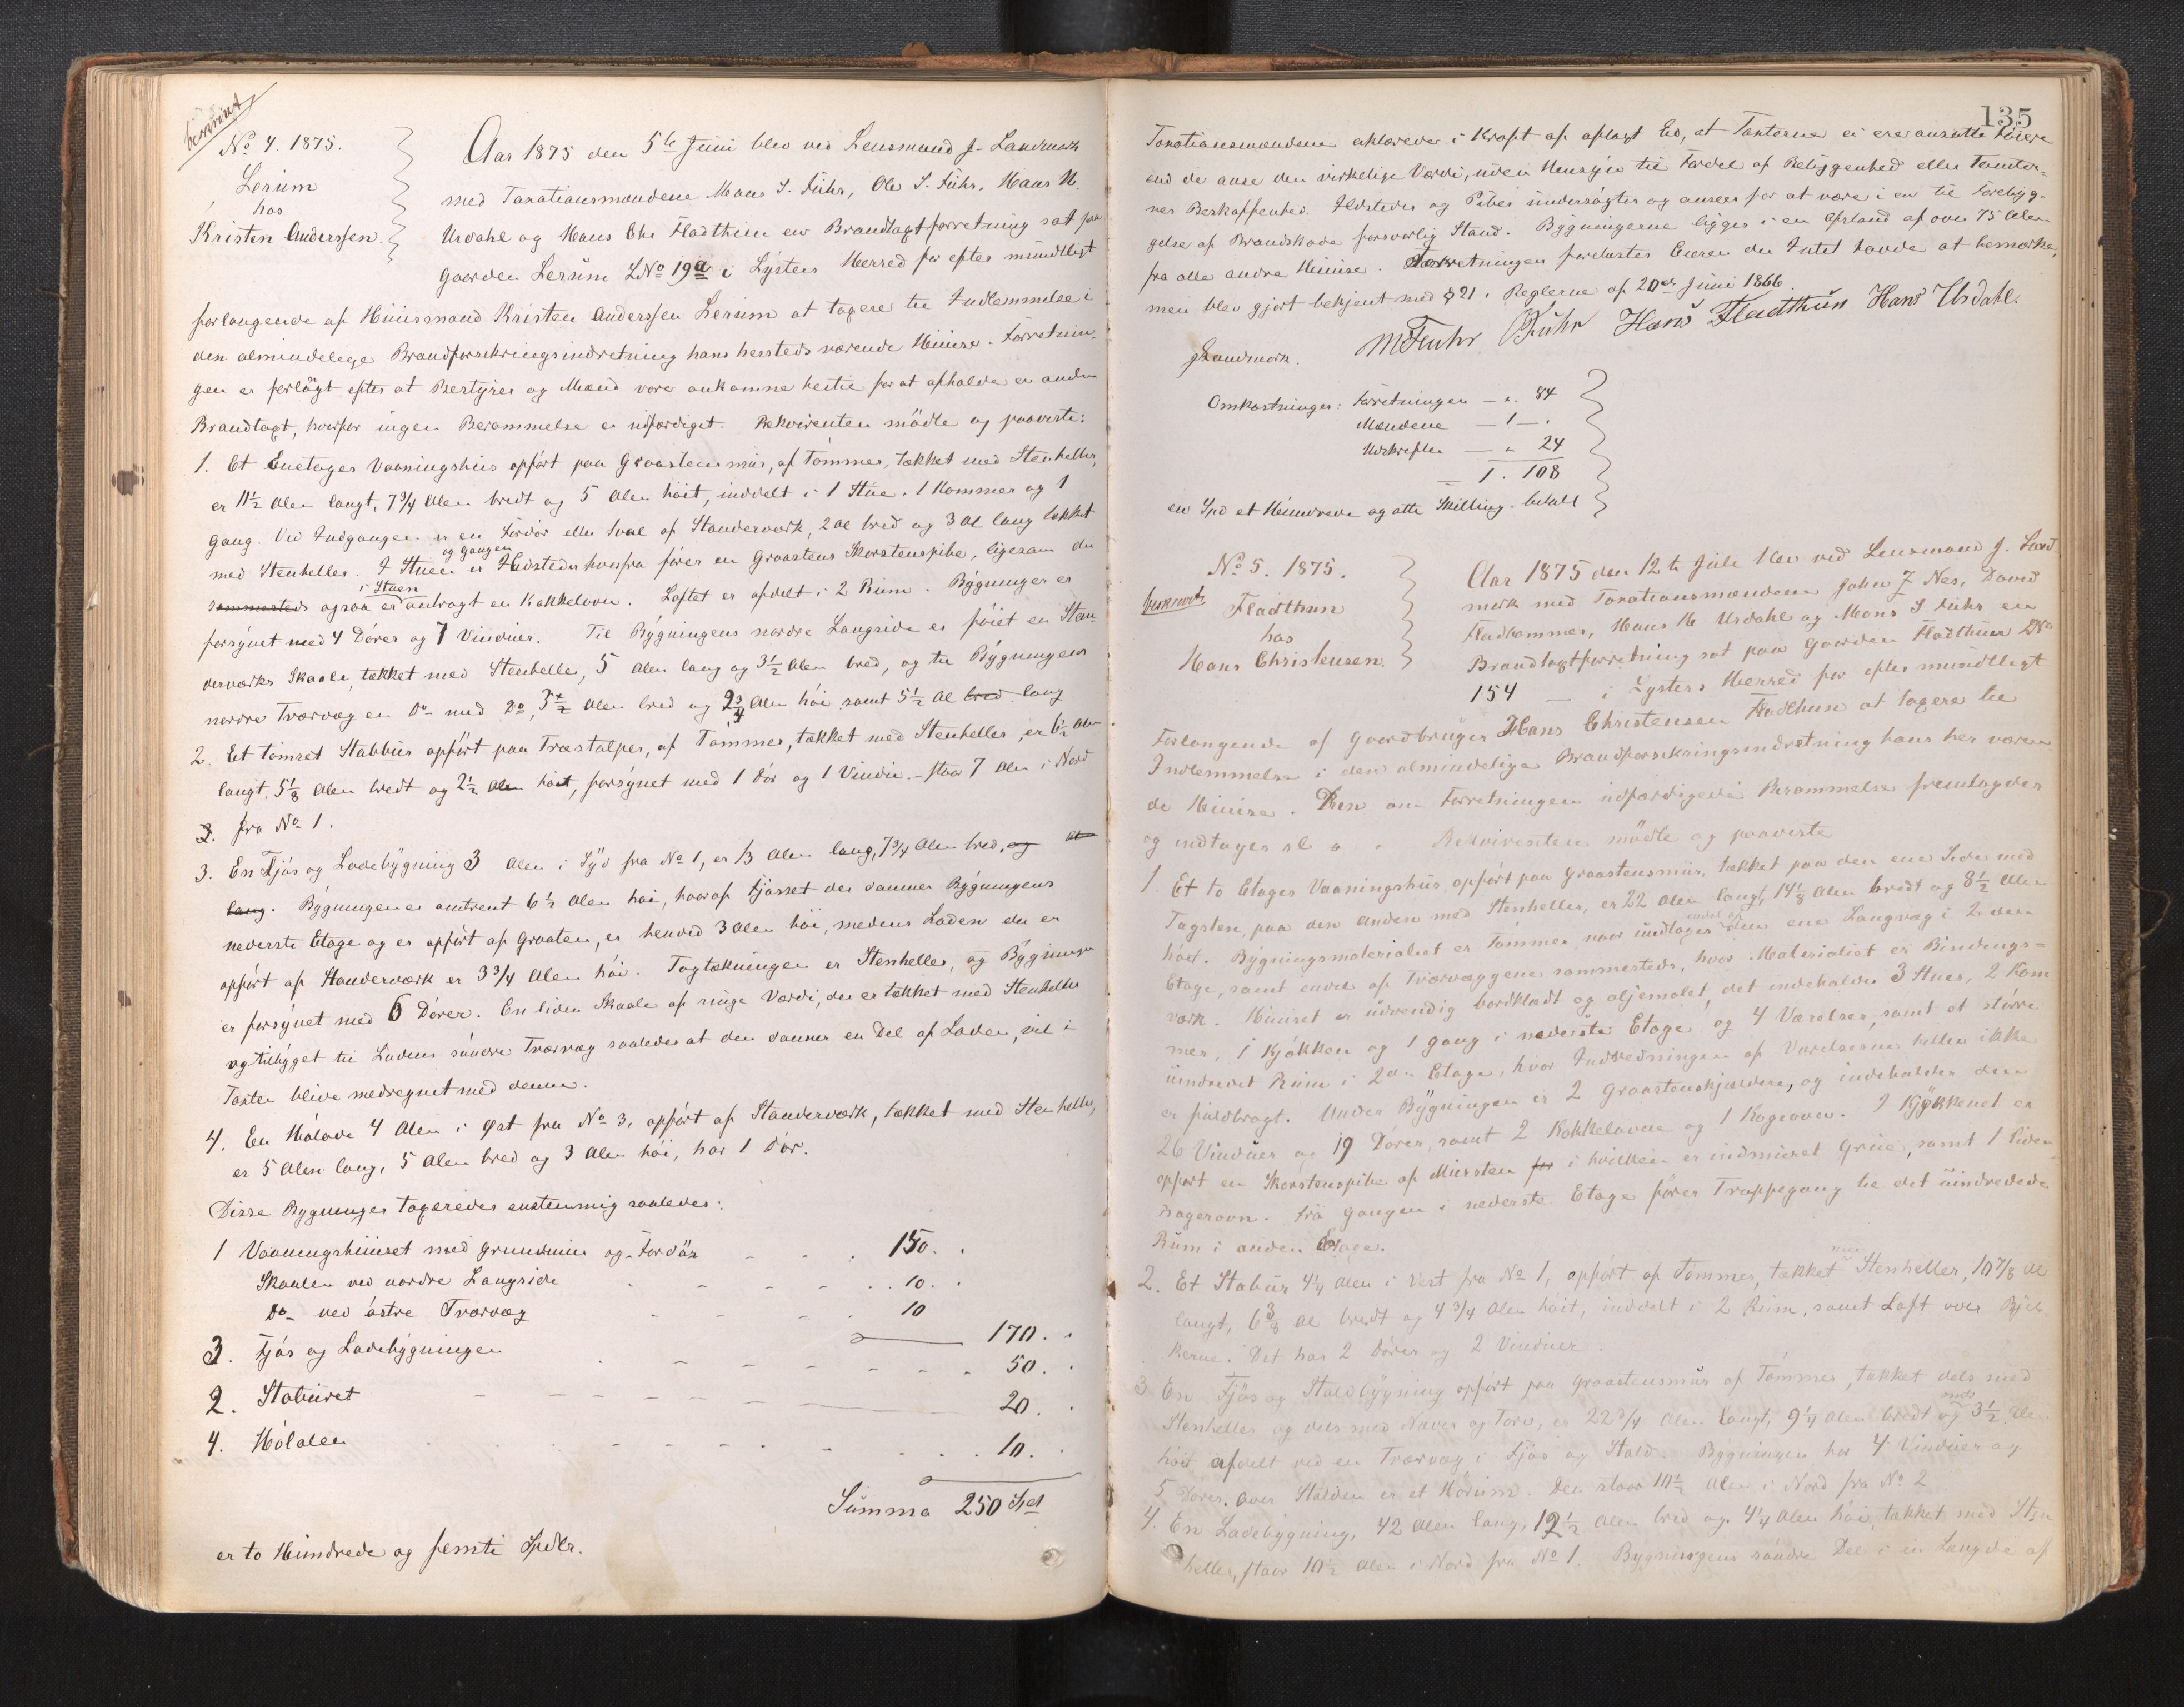 beskrevet
No 4. 1875.
Lerum
hos
Kristen Anderssen.
Aar 1875 den 5te Juni blev ved Lensmand J. Landmark
med Taxationsmændene Mons S. Fuhr, Ole S. Fuhr, Hans M.
Urdahl og Hans Chr Fladthun en Brandtagtforretning sat paa
Gaarden Lerum LNo 19a i Lysters Herred for efter mundtligt
forlangende af Huusmand Kristen Anderssen Lerum at taxere til Indlemmelse i
den almindelige Brandforsikringsindretning hans hersteds værende Huuse. Forretnin-
gen er forlagt efter at Bestyrer og Mænd vare ankomne hertil for at afholde en anden
Brandtaxt, hvorfor ingen Berammelse er udfærdiget. Rekvirenten mødte og paaviste:
1. Et Eenetages Vaaningshus opført paa Graastensmur, af Tømmer, tækket med Stenheller,
er 11 1/2 Alen langt, 7 3/4 Alen bredt og 5 Alen høit, inddelt i 1 Stue, 1 Kammer og 1
Gang. Ved Indgangen er en Fordør eller Sval af Standerværk, 2 Al bred og 3 Al lang tækket
med Stenheller. I Stuen og Gangen er Ildsteder hvorfra fører en Graastens Skorstenspibe, ligesom der
sammesteds ogsaa er i Stuen anbragt en Kakkelovn. Loftet er afdelt i 2 Rum. Bygningen er
forsynet med 4 Dører og 7 Vinduer. Til Bygningens nordre Langside er føiet en Stan-
derværks Skaale, tækket med Stenheller, 5 Alen lang og 3 1/2 Alen bred, og til Bygningens
nordre Tværvæg en Do med Do, 3 1/2 Alen bred og 2 3/4 Alen høi samt 5 1/2 Al bred lang
2. Et tømret Stabbur opført paa Træstolper, af Tømmer, tækket med Stenheller, er 6 1/2 Alen
langt, 5 1/8 Alen bredt og 2 1/2 Alen høit, forsynet med 1 Dør og 1 Vindu. - staar 7 Alen i Nord
3. fra No 1.
3. En Fjøs og Ladebygning 3 Alen i Syd fra No 1, er 13 Alen lang, 7 3/4 Alen bred, og Al
lang. Bygningen er omtrent 6 1/2 Alen høi, hvoraf Fjøsset der danner Bygningens
nederste Etage og er opført af Graasten, er henved 3 Alen høi, medens Laden der er
opført af Standerværk er 3 3/4 Alen høi. Tagtækningen er Stenheller, og Bygningen
er forsynet med 6 Dører. En liden Skaale af ringe Værdi, der er tækket med Stenheller
og tilbygget til Ladens søndre Tværvæg saaledes at den danner en Del af Laden, vil i
Taxten blive medregnet med denne.
4. En Hølade 4 Alen i Øst fra No 3, opført af Standerværk, tækket med Stenheller,
er 5 Alen lang, 5 Alen bred og 3 Alen høi, har 1 Dør.
Disse Bygninger taxeredes enstemmig saaledes:
1 Vaaningshuuset med Grundmur og Fordør - - . 150. .
Skaalen ved nordre Langside . - - - . . 10. .
Do - ved østre Tværvæg . - - . 10
170. .
3. Fjøs og Ladebygningen . - - - - - - . 50. .
2. Staburet - - - - - - 20. .
4. Høladen . . . - - - - . - . . . 10. .
Summa 250 Spd
er to Hundrede og femti Spdlr.
135
Taxationsmændene erklærede i Kraft af aflagt Ed, at Taxterne ei ere ansatte høiere
end de anse den virkelige Værdi, uden Hensyn til Fordel af Beliggenhed eller Tomter-
nes Beskaffenhed. Ildsteder og Piber undersøgtes og ansees for at være i en til Forebyg-
gelse af Brandskade forsvarlig Stand. Bygningerne ligger i en Afstand af over 75 Alen
fra alle andre Huuse. Forretningen forelæstes Eieren der Intet havde at bemærke,
men blev gjort bekjent med § 21. Reglerne af 20de Juni 1866.
JLandmark. MFuhr OFuhr Hans Fladthun Hans Urdahl.
Omkostninger: Forretningen - „. 84
Mændene - 1 - .
Udskriften - „ 24
- 1. 108
en Spd et Hundrede og otte Skilling. betalt
No 5. 1875.
beskrevet Fladthun
hos
Hans Christensen.
Aar 1875 den 12te Juli blev ved Lensmand J. Land-
mark med Taxationsmændene John J Nes, David
Fladhammer, Hans M. Urdahl og Mons S Fuhr en
Brandtaxtforretning sat paa Gaarden Fladthun LNo
154 - i Lysters Herred for efter mundtligt
Forlangende af Gaardbruger Hans Christensen Fladthun at taxere til
Indlemmelse i den almindelige Brandforsikringsindretning hans her væren-
de Huuse. Den om Forretningen udfærdigede Berammelse fremlagdes
og indtages sl a . Rekvirenten mødte og paaviste
1. Et to Etages Vaaningshus, opført paa Graastensmur, tækket paa den ene Side med
Tagsten, paa den anden med Stenheller, er 22 Alen langt, 14 1/8 Alen bredt og 8 1/2 Alen
høit. Bygningsmaterialiet er Tømmer naar undtages endel af den ene Langvæg i 2den
Etage, samt endel af Tværvæggene sammesteds, hvor Materialiet er Bindings=
værk. Huuset er udvendig bordklædt og oljemalet, det indeholder 3 Stuer, 2 Kam
mer, 1 Kjøkken og 1 Gang i nederste Etage og 4 Værelser, samt et større
uindredet Rum i 2den Etage, hvor Indredningen af Værelserne heller ikke
er fuldbragt. Under Bygningen er 2 Graastenskjældere, og indeholder den
26 Vinduer og 19 Dører, samt 2 Kakkelovne og 1 Kogeovn. I Kjøkkenet er
opført en Skorstenspibe af Mursten for i hvilken er indmuret Grue, samt 1 liden
Bagerovn. Fra Gangen i nederste Etage fører Trappegang til det uindredede
Rum i anden Etage.
2. Et Stabur 4 1/4 Alen i Vest fra No 1, opført af Tømmer, tækket med Stenheller, 10 7/8 Al
langt, 6 3/8 Al bredt og 4 3/4 Alen høit, inddelt i 2 Rum, samt Loft over Bjel-
kerne. Det har 2 Dører og 2 Vinduer.
3. En Fjøs og Staldbygning opført paa Graastensmur af Tømmer, tækket dels med
Stenheller og dels med Næver og Torv, er 22 3/4 Alen langt, 9 1/4 Alen bredt og 3 1/2 Alen
høit afdelt ved en Tværvæg i Fjøs og Stald. Bygningen har 4 Vinduer og
5 Dører. Over Stalden er et Hørum. Den staar 10 1/2 Alen i Nord fra No 2
4. En Ladebygning, 42 Alen lang, 12 1/2 Alen bred og 4 1/4 Alen høi, tækket med Sten
heller, staar 10 1/2 Alen i Nord fra No 1. Bygningens søndre Del i en Længde af